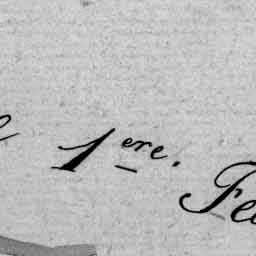 1ere. Fe